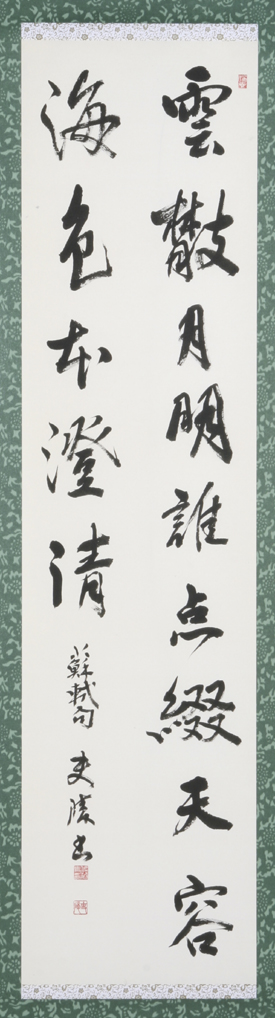 雲散月明誰点綴天容
海色本澄清
蘇軾句
書